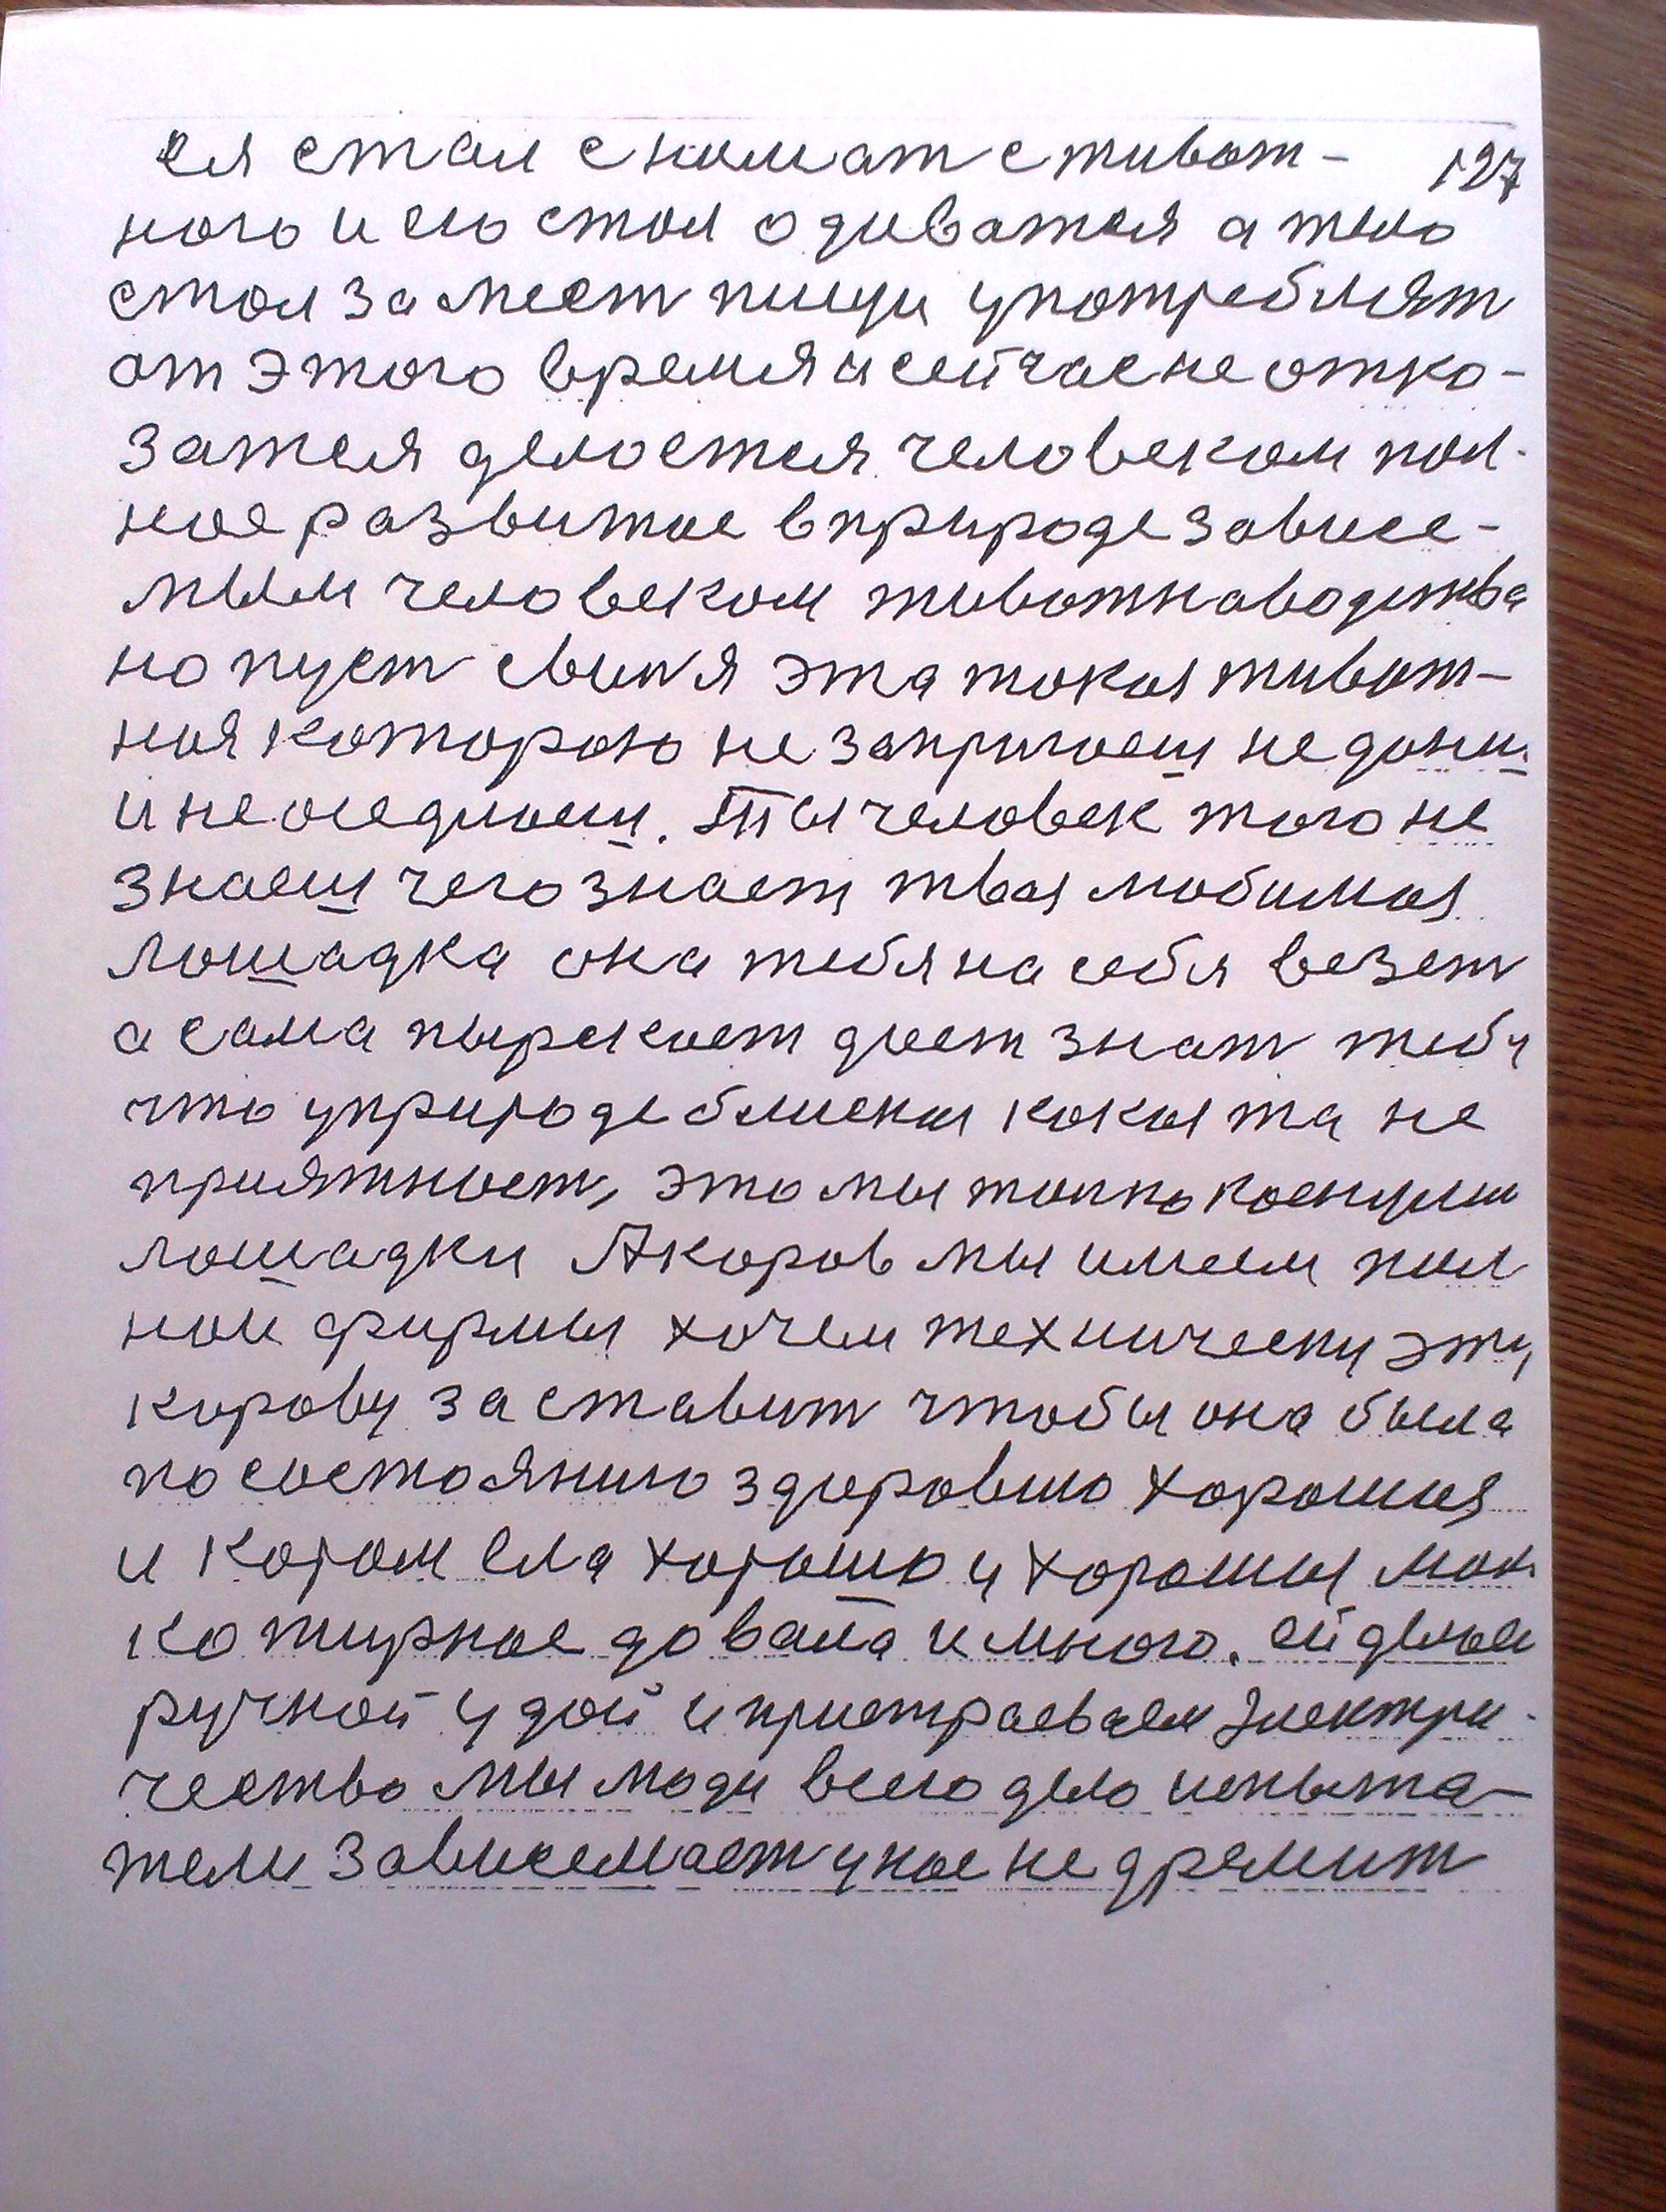 ся стал снимат с живот- 127
ного и ею стал одиватся а тело
стал замест пищи употреблят
от этого время и сейчас не отка-
затся делается человеком пол-
ное развитие в природе зависе-
мым человеком животнаводства
но пуст свиня эта такая живот-
ная которою не запригаеш не доиш
и не оседлаеш. Ты человек того не
знаеш чего знает твоя любимая
лошадка она тебя на себя везет
а сама пырскает дает знат тебу
что у природе близкая какая та не
приятност, это мы толко коснулис
лошадки А коров мы имеем пол
ной фирмы хочем техническу эту
корову заставит чтобы она была
по состоянию здоровию хорошия
и кором ела хорошо и хорошия моло
ко жирное давала и много. ей делаем
ручной удой и пристраеваем электри-
чество мы люди всего дело испыта-
тели зависемаст у нас не дремит